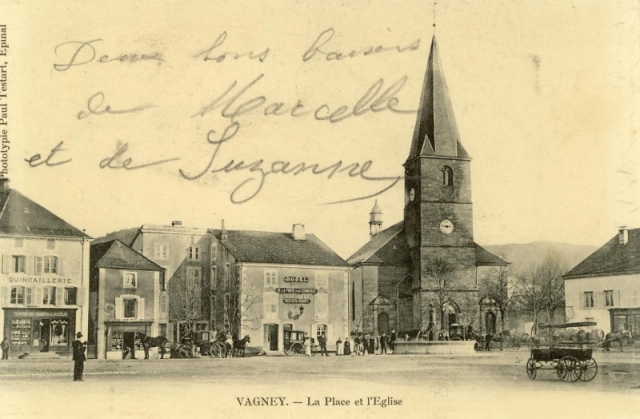 Deux bons baisers
de Marcelle
et de Suzanne
Phototypie Paul Testart, Epinal
QUINCAILLERIE
HOTEL
VAGNEY. — La Place et l'Eglise